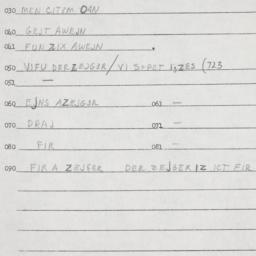 030 MEN CITEM OAN
060 GEJT AWEJN
061 FUN ZIX AWEJN
050 VIFU DERZEJGER/VI SPET IZES (723
052 —
060 EJNS AZEJGER 061 —
070 DRAJ 071 —
080 FIR 081 —
090 FIR A ZEJGER DER ZEJGER IZ ICT FIR